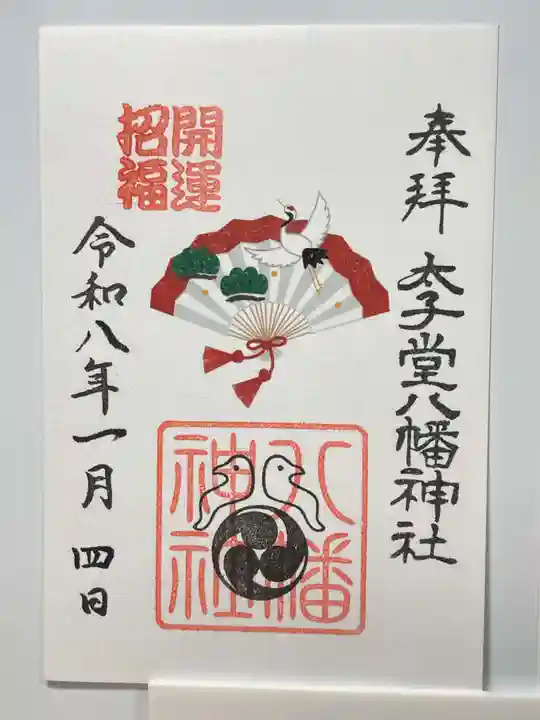 奉拝 太子堂八幡神社
開運
招福
八幡
神社
令和八年一月 四日